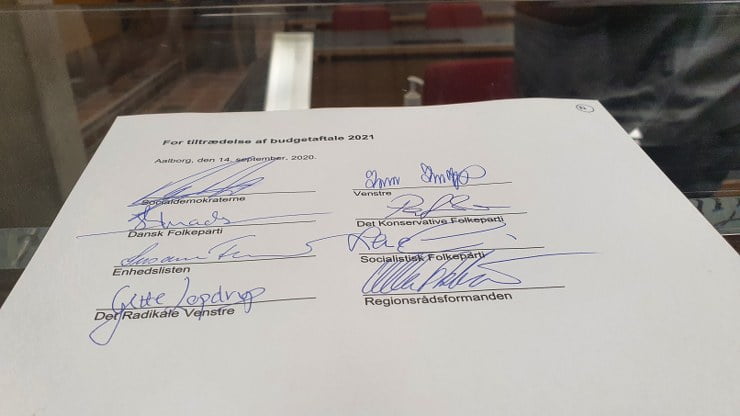 For tiltrædelse af budgetaftale 2021
Aalborg, den 14. september. 2020.
Socialdemokraterne
Venstre
Dansk Folkeparti
Det Konservative Folkeparti
Susanne
Enhedslisten
Socialistisk Folkeparti
Gitte Lopdrup
Det Radikale Venstre
Regionsrådsformanden